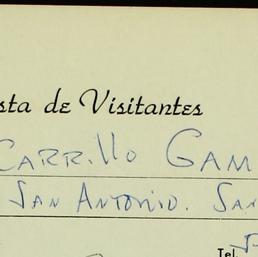 sta de Visitantes
CARRillo GAM
SAN ANTONIO. SAN
Tel.